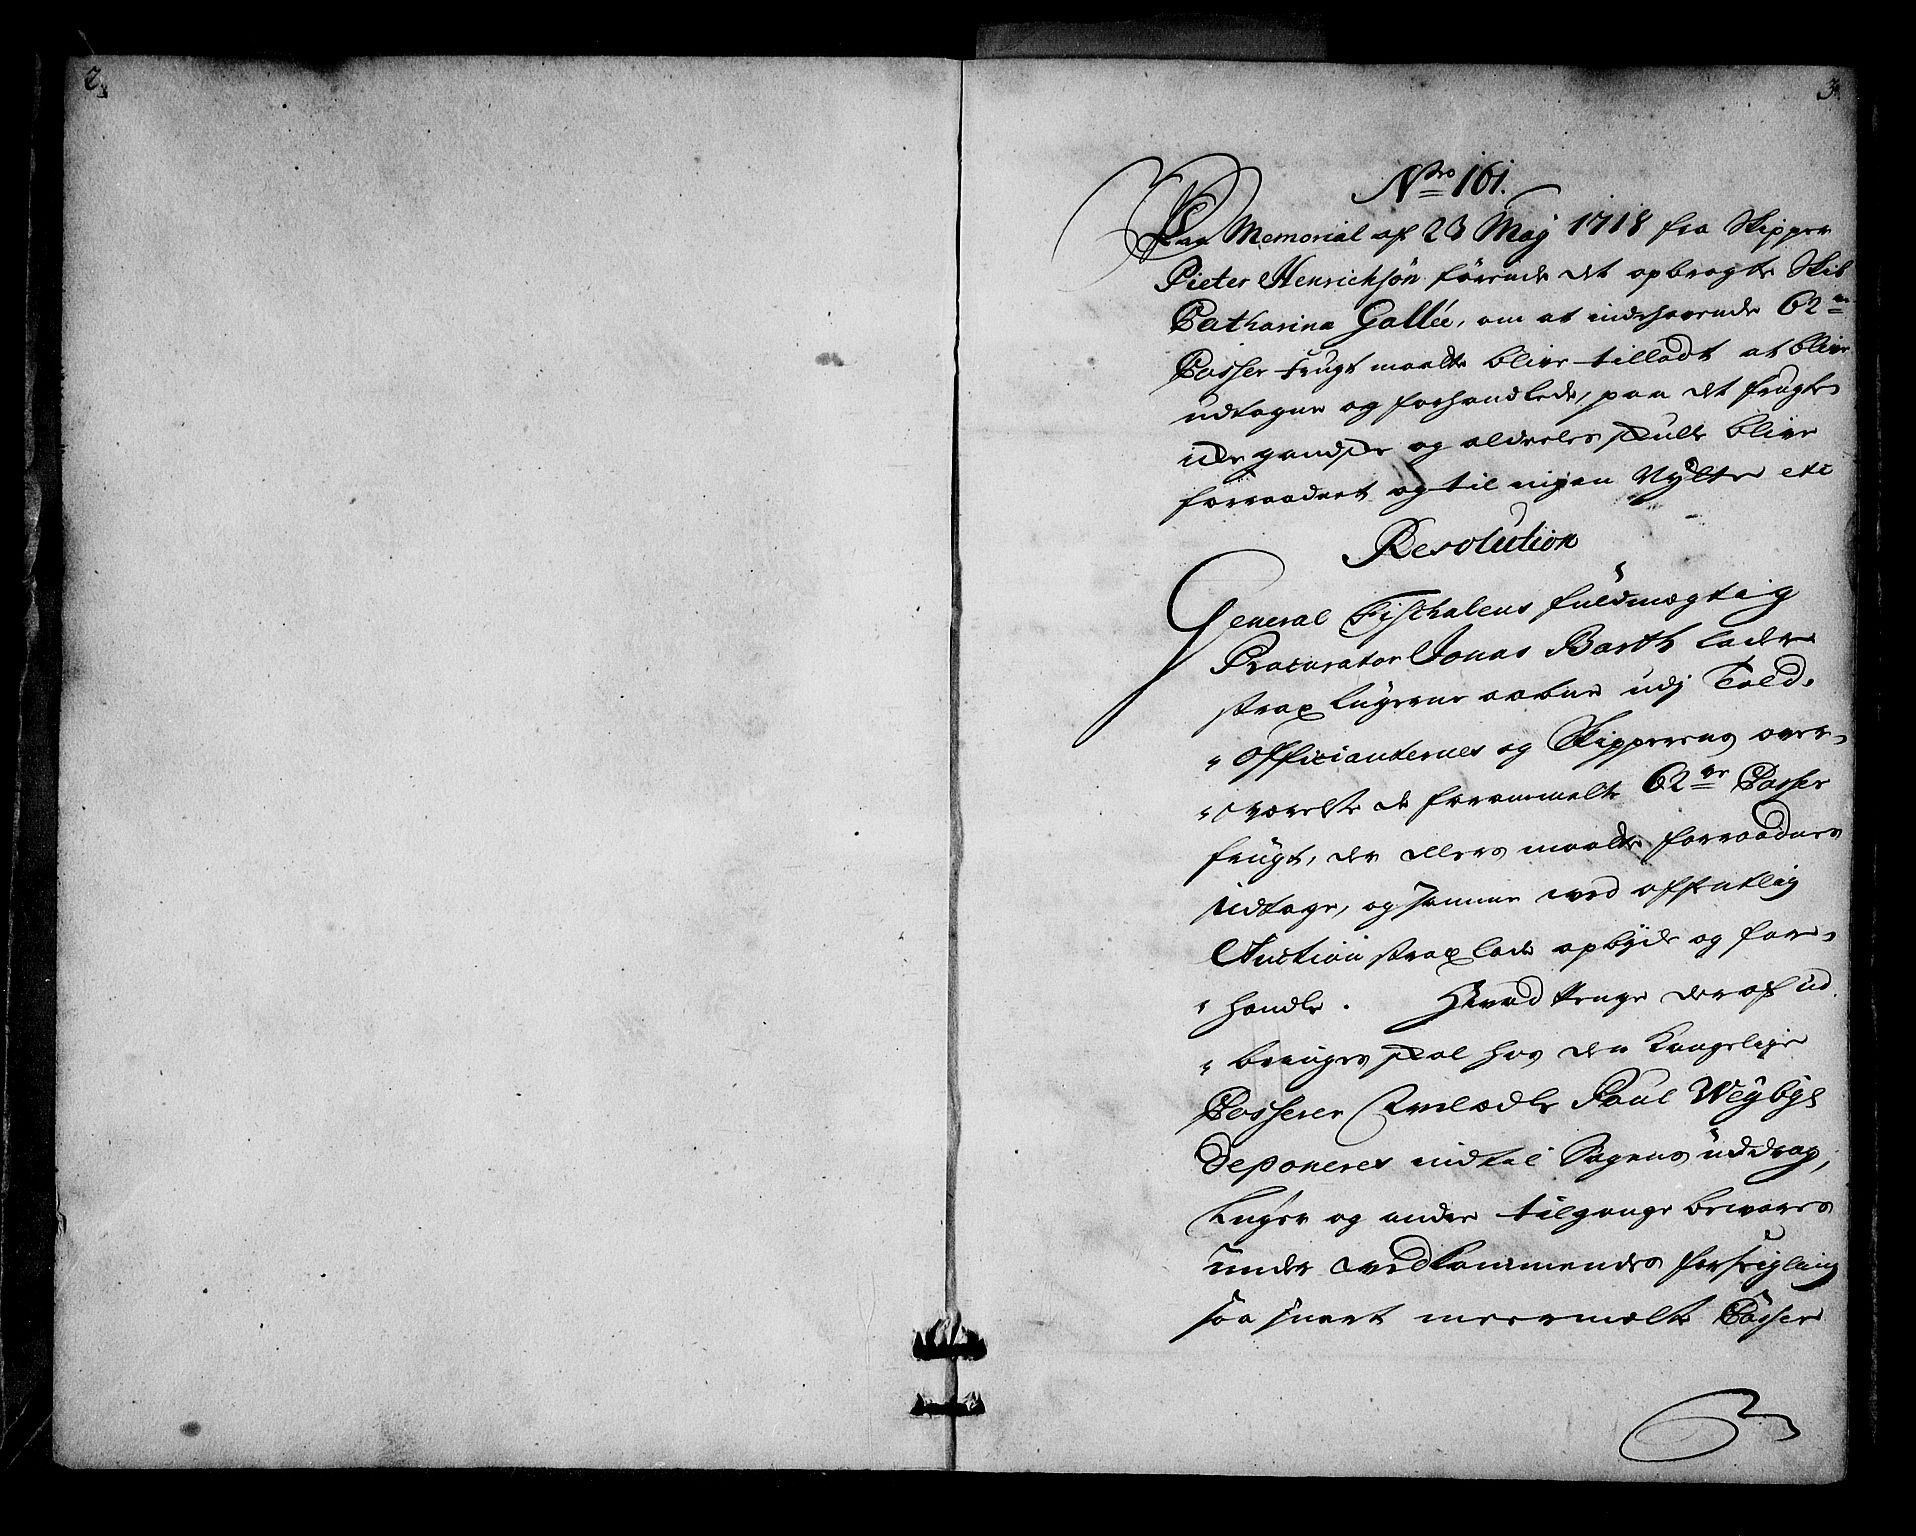 2
3
Nro 161.
Paa Memorial af 23 Maÿ 1718 fra Skipper
Pieter Henrichsön förende det opbragte Skib
Catharina Gallée, om at indehavende 62de
Casser Frugt maatte blive tilladt at blive
udtagne og forhandlede, paa det frugten
icke gandske og aldeeles skulle blive
forraadnet og til ingen Nytte etc
Resolution
General Fischalens fuldmægtig
Procurator Jonas Barth lader
strax Lugerne aabne udj Told-
officianternes og Skipperens over-
værelse de forommelte 62de Casser
frugt, der ellers maatte forraadnes
udtage, og samme ved offentlig
Auction strax lade opbyde og for-
handle. Hvad Penge deraf ud-
bringes skal hos den Kongelige
Casserer Paul Weybye
Deponeres indtil Sagens uddrag,
Luger og andre tilgange bevares
under vedkommendes forsegling
saa snart meermelte Casser